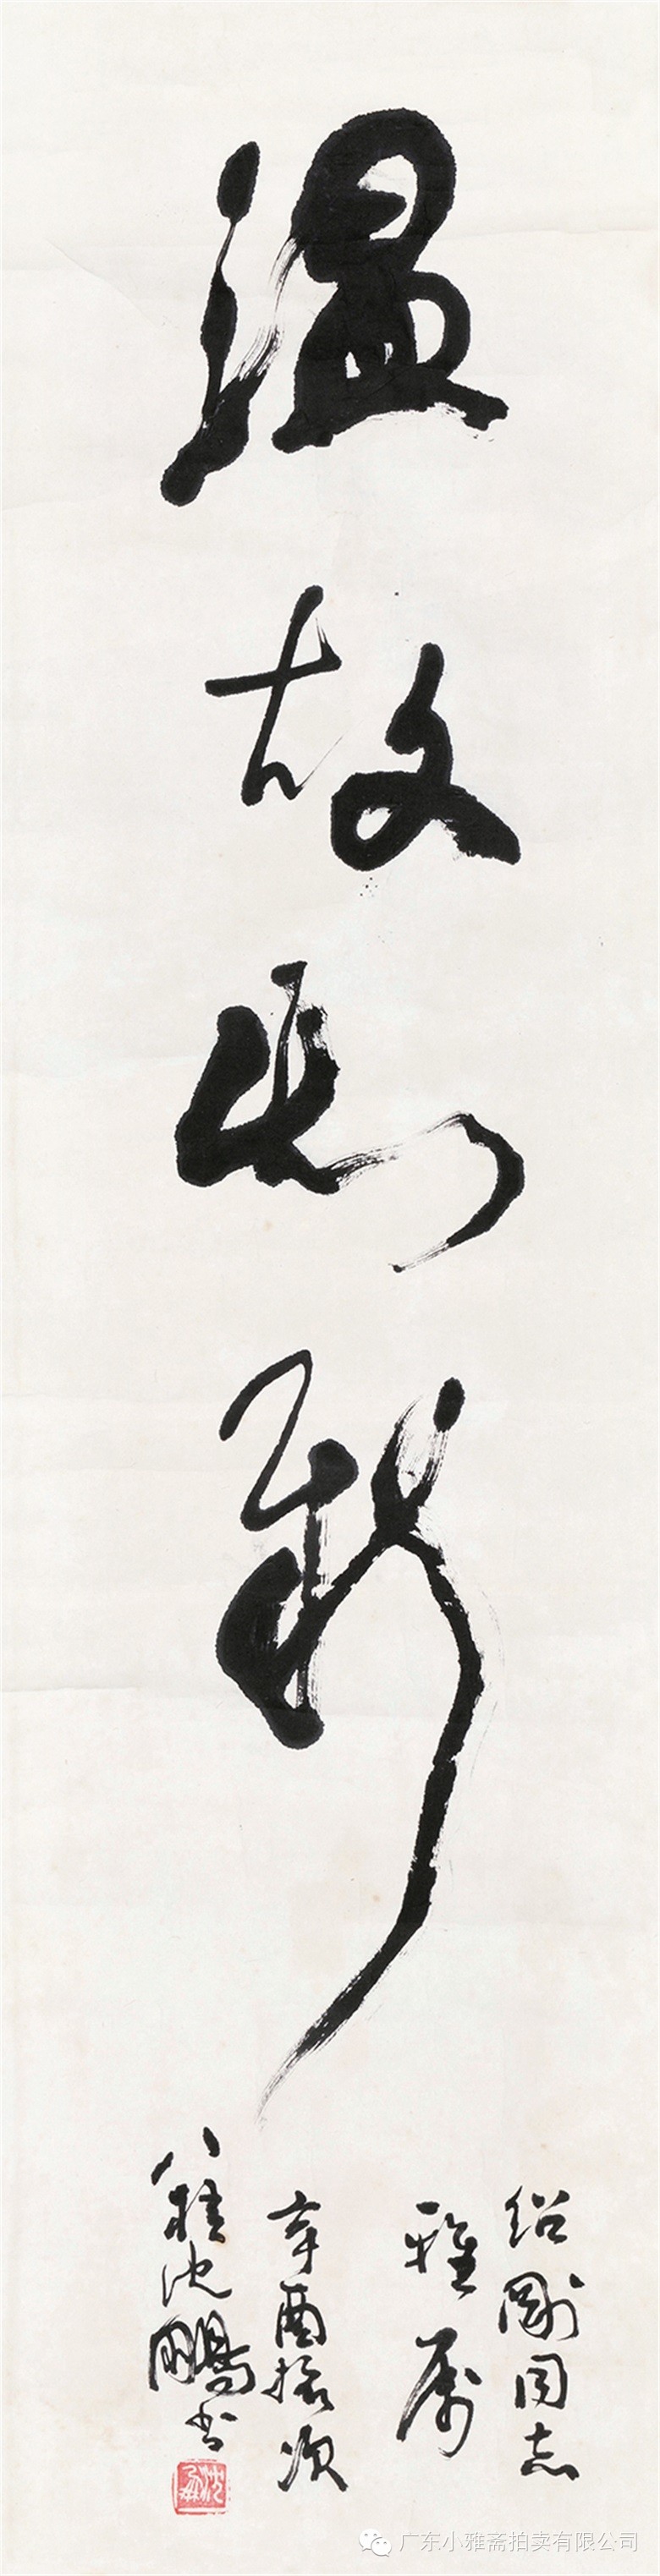 温故知新
绍刚同志
雅属
辛酉旅次
八桂沈鹏书
沈鹏
广东小雅斋拍卖有限公司